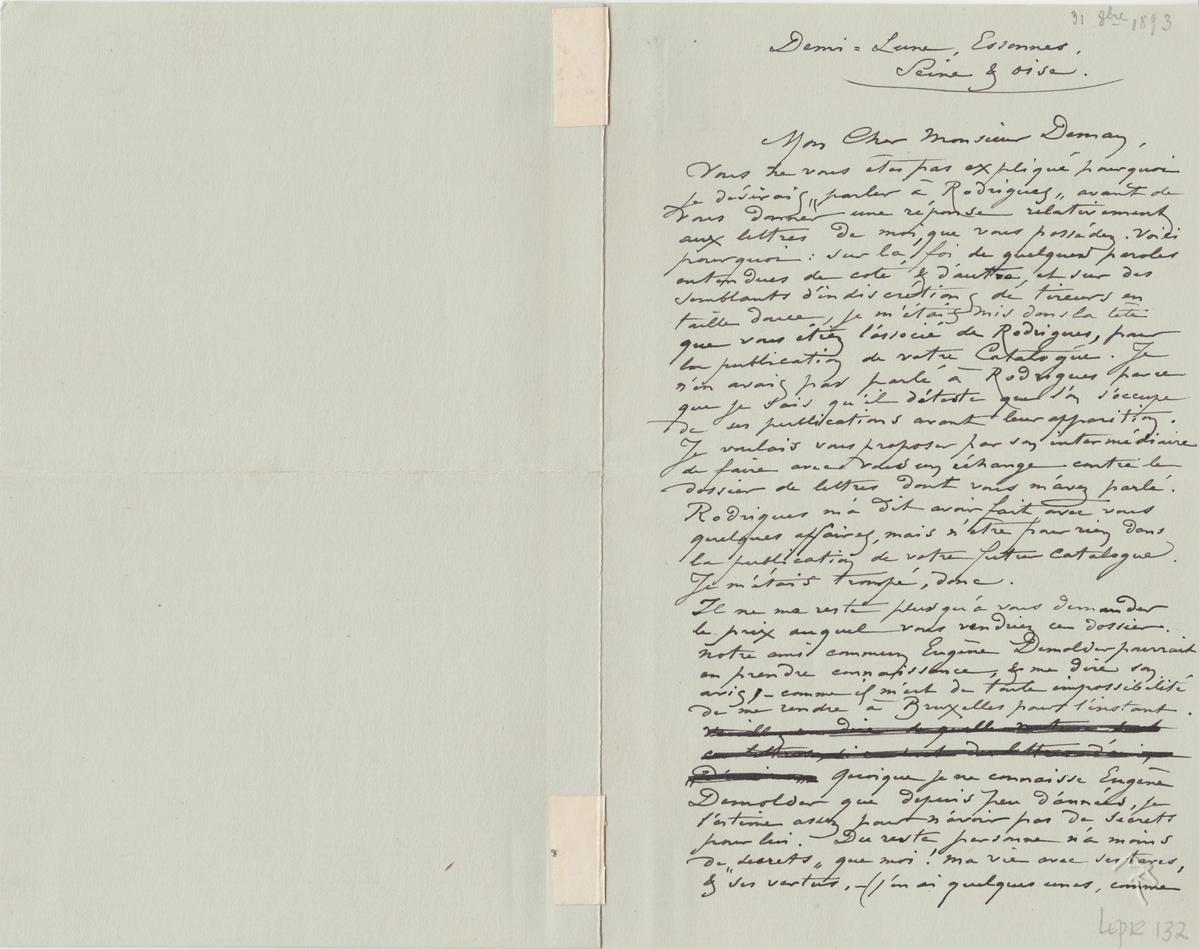 31 8bre 1893
Demi=Lune, Essonnes,
Seine & Oise.
Mon Cher Monsieur Deman,
Vous ne vous êtes pas expliqué pourquoi
je désirais „parler à Rodrigues„ avant de
vous donner une réponse relativement
aux lettres de moi, que vous possédez. Voici
pourquoi : sur la foi de quelques paroles
entendues de coté & d'autre, et sur des
semblants d'indiscrétions de tireurs en
taille douce, je m'étais mis dans la tête
que vous étiez l'associé de Rodrigues, pour
la publication de votre Catalogue. Je
n'en avais pas parlé à Rodrigues parce
que je sais qu'il déteste que l'on s'occupe
de ses publications avant leur apparition.
Je voulais vous proposer par son intermédiaire
de faire avec vous un échange contre le
dossier de lettres dont vous m'avez parlé.
Rodrigues m'a dit avoir fait avec vous
quelques affaires, mais n'être pour rien dans
la publication de votre futur Catalogue.
Je m'étais trompé, donc.
Il ne me reste plus qu'à vous demander
le prix auquel vous vendriez ce dossier.
Notre ami commun Eugène Demolder pourrait
en prendre connaissance, & me dire son
avis, – comme il m'est de toute impossibilité
de me rendre à Bruxelles pour l'instant.
quoique je ne connaisse Eugène
Demolder que depuis peu d'années, je
l'estime assez pour n'avoir pas de secrets
pour lui. – Du reste personne n'a moins
de „secrets„ que moi ! ma vie avec ses tares,
& ses vertus, – (j'en ai quelques unes, comme
LEpr 132